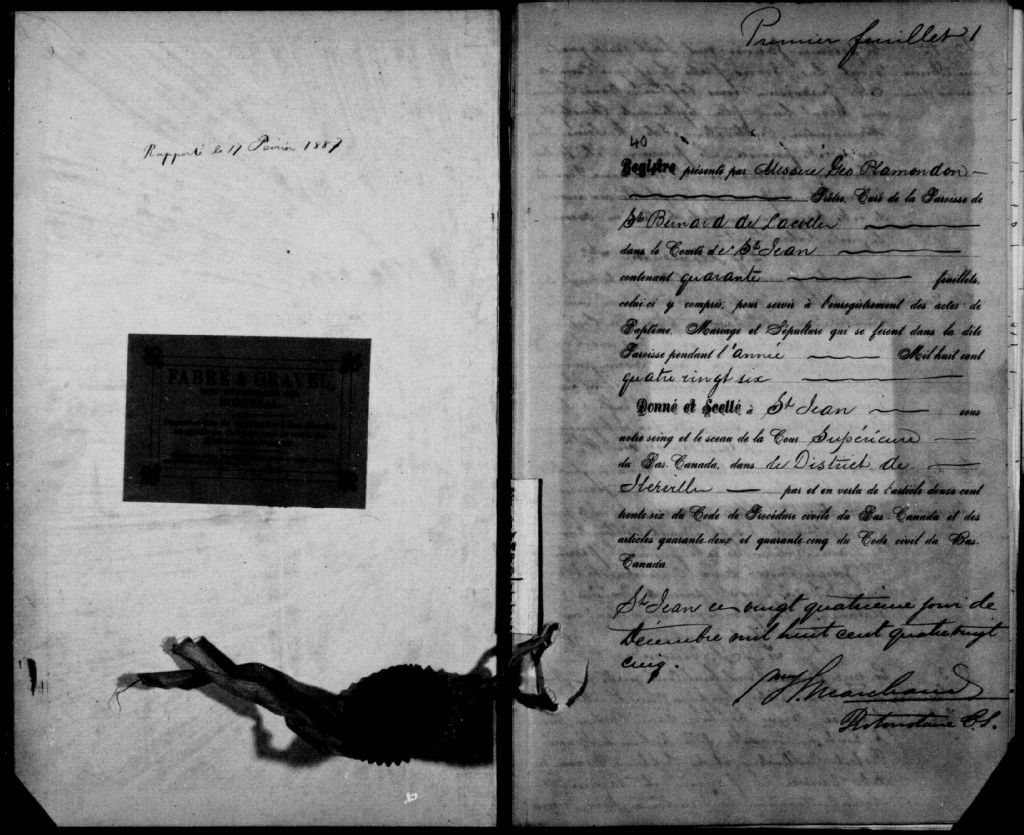 Rapporté le 17 Février 1887
FABRE & GRAVEL
Premier feuillet 1
40
Registre présenté par Messire Geo Plamondon
Prêtre, Curé de la Paroisse de
St Bernard de Lacolle
dans le Comté de St Jean
contenant quarante feuillets,
celui-ci y compris, pour servir à l'enregistrement des actes de
Baptême, Mariage et Sépulture qui se feront dans la dite
Paroisse pendant l'année Mil huit cent
quatre vingt six
Donné et Scellé à St Jean sous
notre seing et le sceau de la Cour Supérieure
du Bas-Canada, dans le District de
Iberville par et en vertu de l'article douze cent
trente-six du Code de Procédure civile du Bas-Canada et des
articles quarante-deux et quarante-cinq du Code civil du Bas-
Canada
St Jean ce vingt quatrieme jour de
Décembre mil huit cent quatre vingt
cinq.
Marchand
Protonotaire C.S.